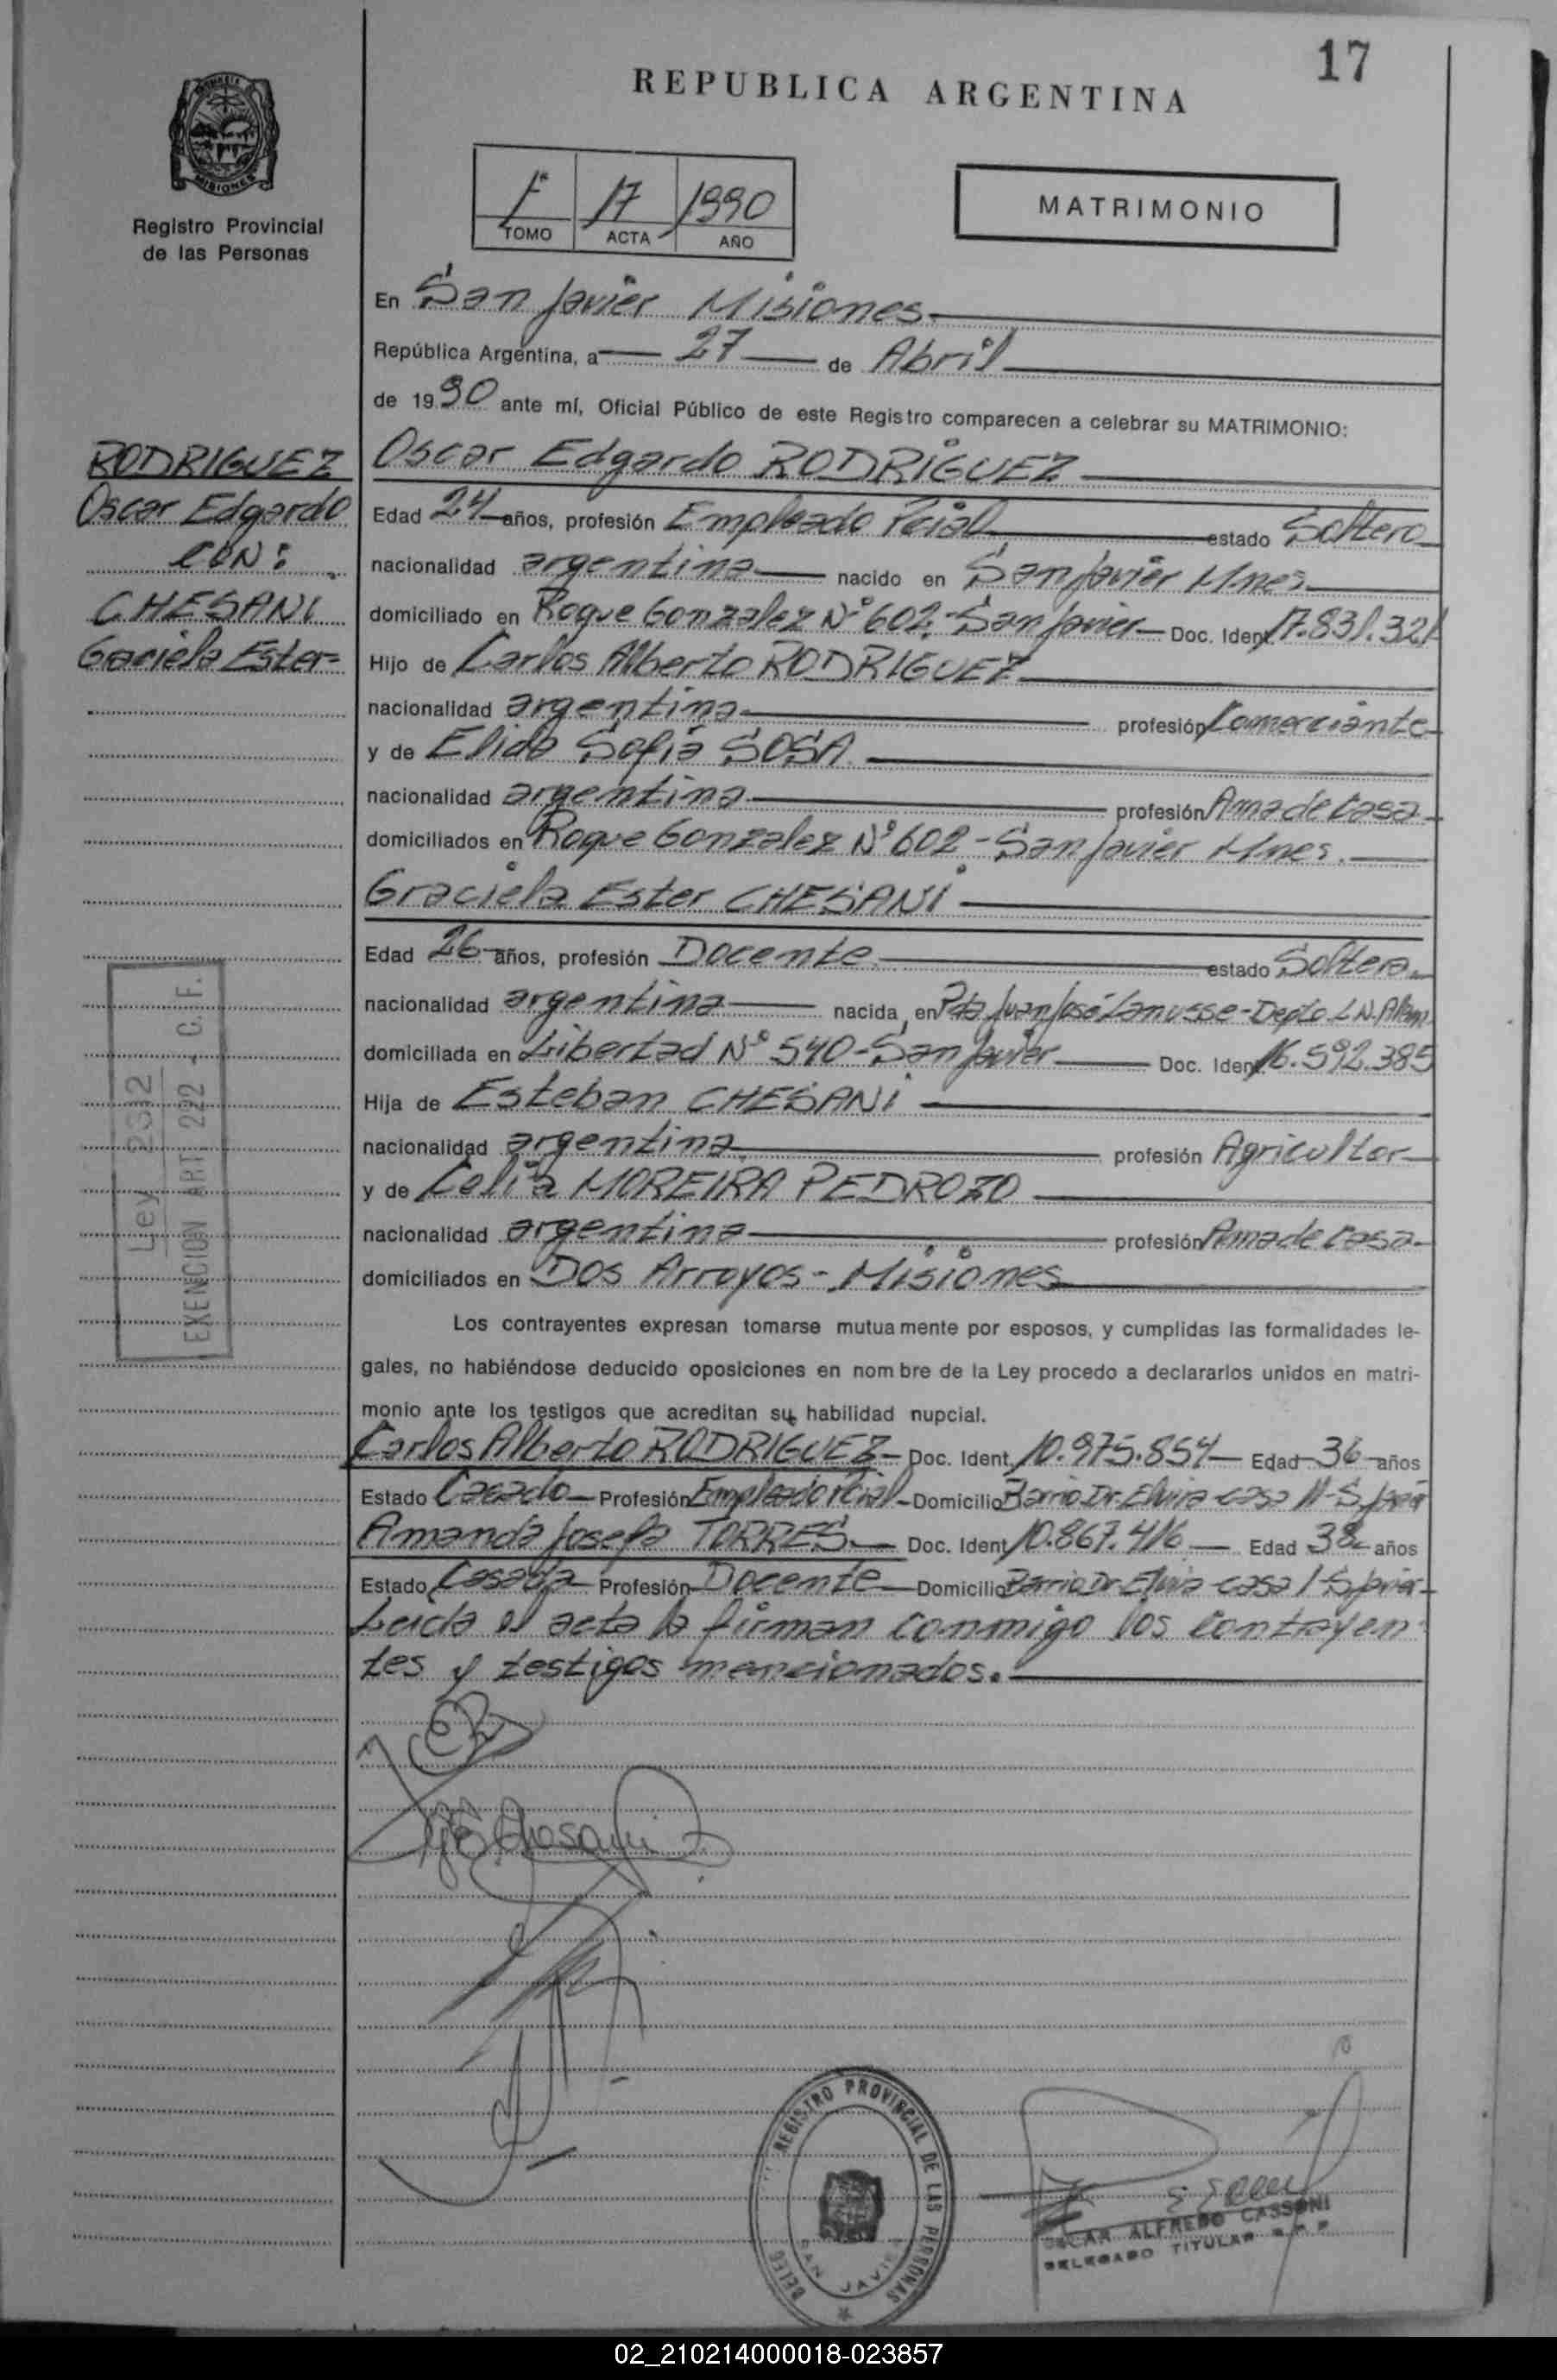 17
REPUBLICA ARGENTINA
MISIONES
Registro Provincial
de las Personas
1º 17 1990
TOMO ACTA AÑO
MATRIMONIO
En San Javier Misiones
República Argentina, a 27 de Abril
de 1990 ante mí, Oficial Público de este Registro comparecen a celebrar su MATRIMONIO:
RODRIGUEZ
Oscar Edgardo
CON:
CHESANI
Graciela Ester
Oscar Edgardo RODRIGUEZ
Edad 24 años, profesión Empleado Pcial estado Soltero
nacionalidad argentina nacido en San Javier Mnes
domiciliado en Roque Gonzalez Nº 602-San Javier Doc. Ident 17.831.321
Hijo de Carlos Alberto RODRIGUEZ
nacionalidad argentina profesión Comerciante
y de Elida Sofia SOSA
nacionalidad argentina profesión Ama de Casa
domiciliados en Roque Gonzalez Nº 602-San Javier Mnes.
Graciela Ester CHESANI
Edad 26 años, profesión Docente estado Soltera
nacionalidad argentina nacida en Pta Juan José Lanusse-Depto L.N.Alem
domiciliada en Libertad Nº 540-San Javier Doc. Ident 16.592.385
Hija de Esteban CHESANI
nacionalidad argentina profesión Agricultor
y de Celia MOREIRA PEDROZO
nacionalidad argentina profesión Ama de Casa
domiciliados en Dos Arroyos-Misiones
Ley 2302
EXENCION ART 222 - C.F.
Los contrayentes expresan tomarse mutuamente por esposos, y cumplidas las formalidades le-
gales, no habiéndose deducido oposiciones en nombre de la Ley procedo a declararlos unidos en matri-
monio ante los testigos que acreditan su habilidad nupcial.
Carlos Alberto RODRIGUEZ Doc. Ident 10.975.854 Edad 36 años
Estado Casado Profesión Empleado Pcial Domicilio Barrio Dr. Elvira casa 11-S.Javier
Amanda Josefa TORRES Doc. Ident 10.867.416 Edad 38 años
Estado Casada Profesión Docente Domicilio Barrio Dr Elvira casa 1-S.Javier
Leida el acta la firman conmigo los contrayen-
tes y testigos mencionados.
G E Chesani
REGISTRO PROVINCIAL DE LAS PERSONAS
DELEG SAN JAVIER
OSCAR ALFREDO CASSONI
DELEGADO TITULAR
02_210214000018-023857